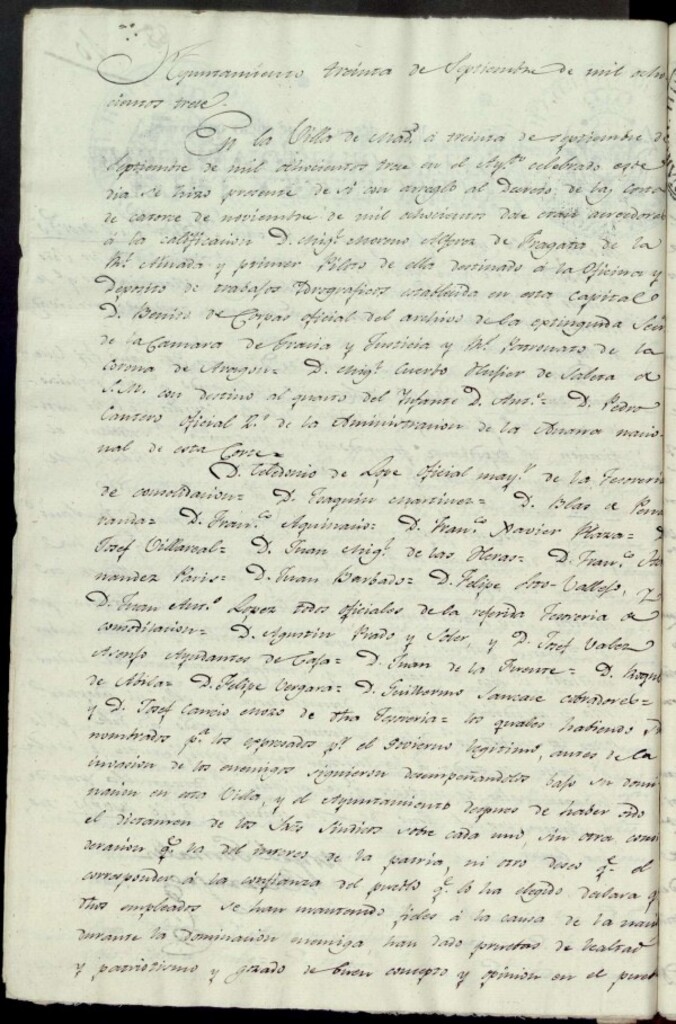 Ayuntamiento treinta de Septiembre de mil ocho
cientos trece.
En la Villa de Mad.d á treinta de septiembre de
septiembre de mil ochocientos trece en el Ay.to celebrado este
dia se hizo presente de q.e con arreglo al Decreto de las cortes
de catorce de noviembre de mil ochocientos doce eran acreedores
á la calificacion D. Mig.l Moreno Alferez de Fragata de la
R.l Armada y primer Piloto de ella destinado á la Oficina y
Deposito de trabajos Idrograficos establecida en esta capital=
D. Benito de Corpas oficial del archivo de la extinguida Secr
de la Camara de Gracia y Justicia y R.l Patronato de la
Corona de Aragon= D. Mig.l Cuerbo Husier de Saleta de
S.M. con destino al quarto del Infante D. Ant.o= D. Pedro
Cantero oficial 2.o de la Administracion de la Aduana nacio
nal de esta Corte=
D. Celedonio de Lope oficial may.r de la Tesoreria
de consolidacion= D. Joaquin Martinez= D. Blas de Peña
randa= D. Fran.co Aquinacio= D. Fran.co Xavier Plaza= D.
Josef Villareal= D. Juan Mig.l de las Heras= D. Fran.co Fer
nandez Paris= D. Juan Barbado= D. Felipe Soto-Vallejo, y
D. Juan Ant.o Lopez todos oficiales de la referida Tesoreria de
consolidacion= D. Agustin Prado y Soler, y D. Josef Valer
Asensio Ayudantes de Caja= D. Juan de la Fuente= D. Roque
de Abila= D. Felipe Vergara= D. Guillermo Sancase cobradores=
y D. Josef Cancio mozo de dha Tesoreria= los quales habiendo sido
nombrados p.a los expresados p.r el Govierno legitimo, antes de la
invasion de los enemigos siguieron desempeñandolos bajo su domi
nacion en esta Villa, y el Ayuntamiento despues de haber oido
el dictamen de los S.res Sindicos sobre cada uno, sin otra consi
deracion q.e la del interes de la patria, ni otro deseo q.e el
corresponder á la confianza del pueblo q.e lo ha elegido declara q.e
dhos empleados se han mantenido fieles á la causa de la nacion
durante la dominacion enemiga, han dado pruebas de lealtad
y patriotismo y gozado de buen concepto y opinion en el pueblo